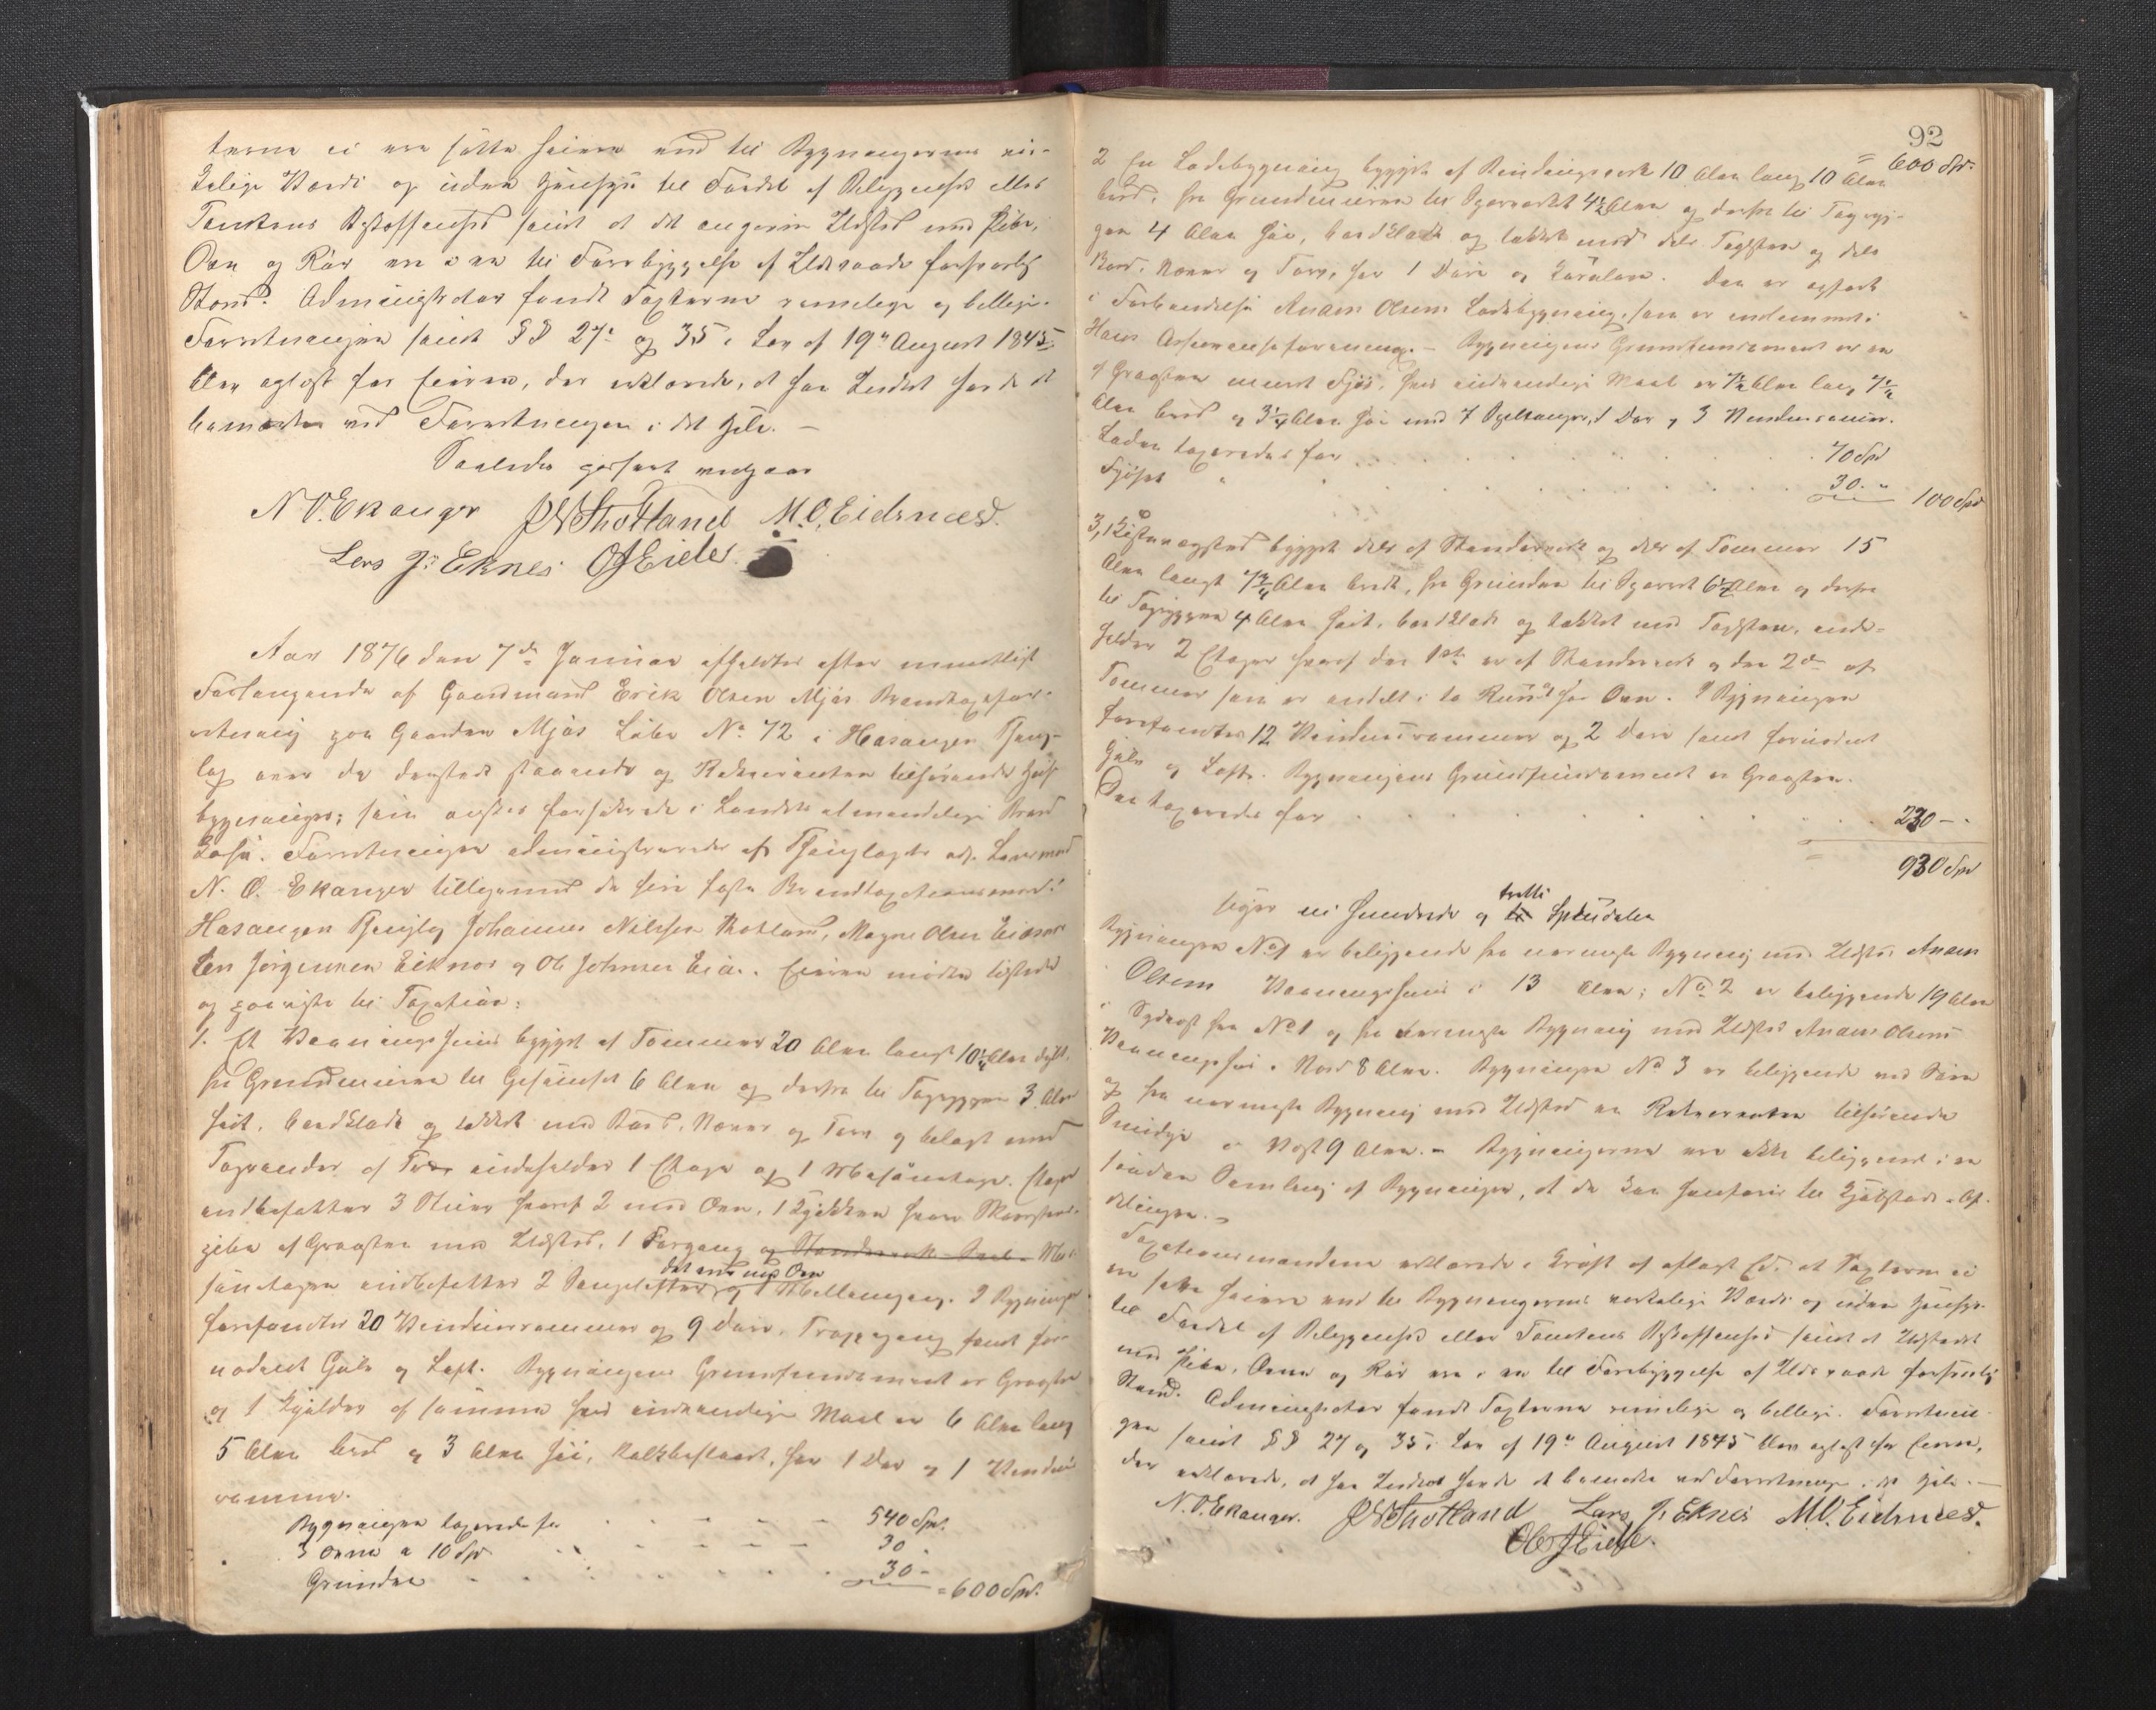 terne ei ere satte høiere end til Bygningernes vir-
kelige Værdi og uden Hensyn til Fordel af Beliggenhed eller
Tomtens Beskaffenhed samt at det angivne Ildsted med Pibe,
Ovn og Rør ere i en til Forebyggelse af Ildsvaade forsvarlig
Stand. Administrator fandt Taxterne rimelige og billige.
Forretningen samt §§ 27 og 35 i Lov af 19de August 1845
blev oplæst for Eieren, der erklærede, at han Intet havde at
bemærke ved Forretningen i det Hele. —
Saaledes passeret vedgaaes
N. O. Ekanger J N Thotland M. O. Eidsnæs.
Lars J. Eknes O J Eide.
Aar 1876 den 7de Januar afholdtes efter mundtligt
Forlangende af Gaardmand Erik Olsen Mjøs Brandtaxtfor-
retning paa Gaarden Mjøs Løbe No 72 i Hosanger Thing-
lag over de dersteds staaende og Rekvirenten tilhørende Huus-
bygninger, som ønskes forsikrede i Landets almindelige Brand
Kasse. Forretningen administreredes af Thinglagets Lensmand
N. O. Ekanger tilligemed de fire faste Brandtaxationsmænd i
Hosanger Thinglag Johannes Nilssen Thotland, Magne Olsen Eidsnes
Lars Jørgensen Eiknes og Ole Johnsen Eide. Eieren mødte tilstede
og paaviste til Taxation:
1. Et Vaaningshuus bygget af Tømmer 20 Alen langt 10½ Alen dybt,
fra Grundmuren til Gesimset 6 Alen og derfra til Tagryggen 3 Alen
høit, bordklædt og tækket med Bord, Næver og Torv og belagt med
Tagrender af Træ indeholder 1 Etage og 1 Mesanetage. Etagen
indbefatter 3 Stuer hvoraf 2 med Ovn, 1 Kjøkken hvor Skorsteens-
pibe af Graasten med Ildsted, 1 Forgang og Me-
sanetagen indbefatter 2 Sengelofter, det ene med Ovn og 1 Mellemgang. I Bygningen
forefandtes 20 Vinduesrammer og 9 Døre, Trappegang samt for-
nødent Gulv og Loft. Bygningens Grundfundament er Graasten
og 1 Kjælder af samme hvis indvendige Maal er 6 Alen lang
5 Alen bred og 3 Alen høi, kalkbeslaaet, har 1 Dør og 1 Vindues
ramme.
Bygningen taxeredes for 540 Spd.
3 Ovne a 10 Spd 30 -
Grunden 30 -
= 600 Spd.
92
= 600 Spd.
2 En Ladebygning bygget af Bindingsverk 10 Alen lang 10 Alen
bred, fra Grundmuren til Sperreret 4½ Alen og derfra til Tagryg-
gen 4 Alen høi, bordklædt og tækket med dels Tagsten og dels
Bord, Næver og Torv, har 1 Dør og Den er opført
i Forbindelse Anders Olsens Ladebygning, som er indlemmet i
Haus Assuranceforening. — Bygningens Grundfundament er en
af Graasten muret Fjøs, hvis indvendige Maal er 7½ Alen lang 7½
Alen bred og 3¼ Alen høi med 1 Dør og 3 Vinduesrammer.
Laden taxeredes for 70 Spd
Fjøset " 30 "
100 Spd
3, bygget dels af Standerverk og dels af Tømmer 15
Alen langt 7¾ Alen bredt, fra Grunden til Sperreret 6½ Alen og derfra
til Tagryggen 4 Alen høit, bordklædt og tækket med Tagsten, inde-
holder 2 Etager hvoraf den 1ste er af Standerverk og den 2den af
Tømmer som er inddelt i to Rum og har Ovn. I Bygningen
forefandtes 12 Vinduesrammer og 2 Døre samt fornødent
Gulv og Lofte. Bygningens Grundfundament er Graasten.
Den taxeredes for 230 — .
930 Spd
siger ni Hundrede og tretti Speciedaler
Bygningen No 1 er beliggende fra nærmeste Bygning med Ildsted Anders
Olsens Vaaningshuus i 13 Alen; No 2 er beliggende 19 Alen
i Sydvest fra No 1 og fra nærmeste Bygning med Ildsted Anders Olsens
Vaaningshuus i Nord 8 Alen. Bygningen No 3 er beliggende ved Søen
og fra nærmeste Bygning med Ildsted en Rekvirenten tilhørende
Smidje i Vest 9 Alen. — Bygningerne ere ikke beliggende i en
saadan Samling af Bygninger, at de kan henføres til Kjøbstads Af-
delingen. —
Taxationsmændene erklærede i Kraft af aflagt Ed, at Taxterne ei
ere satte høiere end til Bygningernes virkelige Værdi og uden Hensyn
til Fordel af Beliggenhed eller Tomtens Beskaffenhed samt at Ildstedet
med Pibe, Ovne og Rør ere i en til Forebyggelse af Ildsvaade forsvarlig
Stand. Administrator fandt Taxterne rimelige og billige. Forretnin-
gen samt §§ 27 og 35 i Lov af 19de August 1845 blev oplæst for Eieren,
der erklærede, at han Intet havde at bemærke ved Forretningen i det Hele. —
N. O. Ekanger. J N Thotland Lars J. Eknes M. O. Eidsnæs.
Ole J Eide.